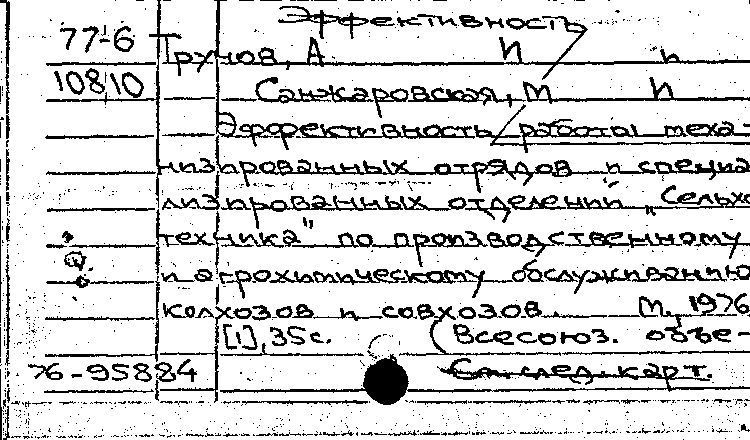 Эффективность
77-6 Трунов, А И и
10810 Санжаровская, М И
Эффективность работы меха-
низированных отрядов и специа
лизированных отделений „Сельхо
техника" по производственному
и агрохимическому обслуживанию
колхозов и совхозов. М., 1976
[1], 35 с. (Всесоюз. объе-
76-95884 См. след. карт.